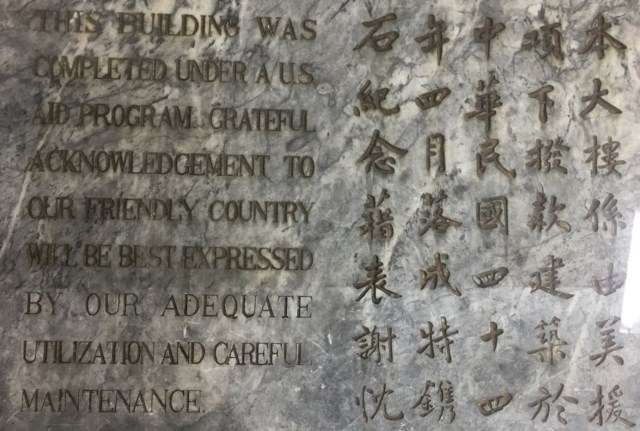 THIS BUILDING WAS
COMPLETED UNDER A U.S.
AID PROGRAM. GRATEFUL
ACKNOWLEDGEMENT TO
OUR FRIENDLY COUNTRY
WILL BE BEST EXPRESSED
BY OUR ADEQUATE
UTILIZATION AND CAREFUL
MAINTENANCE.
本大樓係由美援
項下撥款建築於
中華民國四十四
年四月落成特鐫
石紀念藉表謝忱